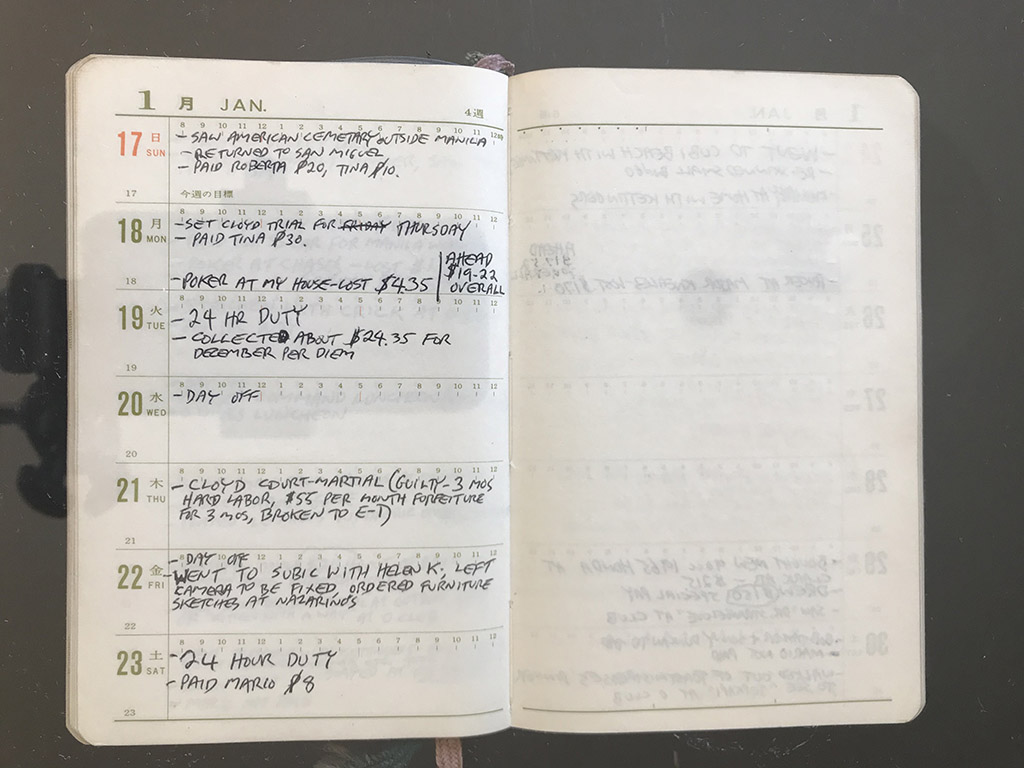 1 月 JAN.
4週
8 9 10 11 12 1 2 3 4 5 6 7 8 9 10 11 12時
17 日 SUN
- SAW AMERICAN CEMETARY OUTSIDE MANILA
- RETURNED TO SAN MIGUEL
- PAID ROBERTA $20, TINA $10.
17 今週の目標
8 9 10 11 12 1 2 3 4 5 6 7 8 9 10 11 12
18 月 MON
- SET CLOYD TRIAL FOR FRIDAY THURSDAY
- PAID TINA $30.
18
- POKER AT MY HOUSE - LOST $4.35
AHEAD
$19.22
OVERALL
8 9 10 11 12 1 2 3 4 5 6 7 8 9 10 11 12
19 火 TUE
- 24 HR DUTY
- COLLECTED ABOUT $24.35 FOR
DEZEMBER PER DIEM
19
8 9 10 11 12 1 2 3 4 5 6 7 8 9 10 11 12
20 水 WED
- DAY OFF
20
8 9 10 11 12 1 2 3 4 5 6 7 8 9 10 11 12
21 木 THU
- CLOYD COURT-MARTIAL (GUILTY - 3 MOS
HARD LABOR, $55 PER MONTH FORFEITURE
FOR 3 MOS, BROKEN TO E-1)
21
8 9 10 11 12 1 2 3 4 5 6 7 8 9 10 11 12
22 金 FRI
- DAY OFF
- WENT TO SUBIC WITH HELEN K., LEFT
CAMERA TO BE FIXED, ORDERED FURNITURE
SKETCHES AT NAZARINO'S
22
8 9 10 11 12 1 2 3 4 5 6 7 8 9 10 11 12
23 土 SAT
- 24 HOUR DUTY
- PAID MARIO $8
23